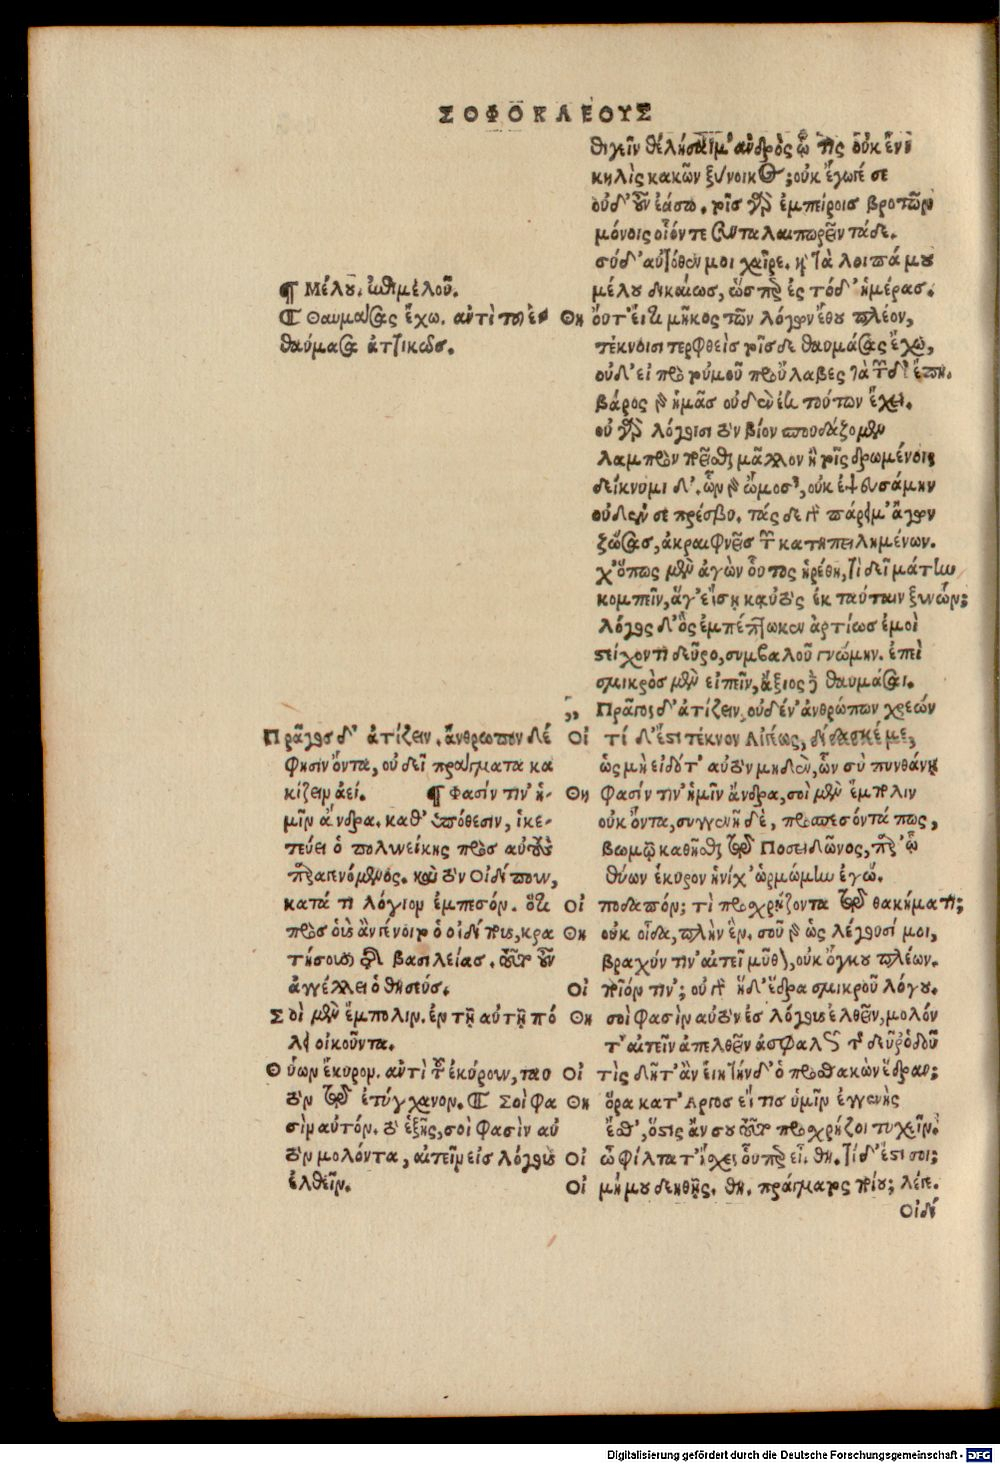 ΣΟΦΟΚΛΕΟΥΣ
θιγεῖν θέλήσαιμ' ἀνδρὸς ᾧ τίς οὐκ ἔνι
κηλὶς κακῶν ξύνοικος; οὐκ ἔγωγέ σε
οὐδ' οὖν ἐάσω. τοῖς γὰρ ἐμπείροις βροτῶν
μόνοις οἷόν τε συνταλαιπωρεῖν τάδε.
σύ δ' αὐτόθεν μοι χαῖρε. καὶ τὰ λοιπά μου
μέλου δικαίως, ὥσπερ ἐς τόδ' ἡμέρας.
Θη οὔτ' εἴ τι μῆκος τῶν λόγων ἔθου πλέον,
τέκνοισι τερφθεὶς τοῖσδε θαυμάσας ἔχω,
οὐδ' εἰ πρὸ τοὐμοῦ προὔλαβες τὰ τῶνδ' ἔπη.
βάρος γὰρ ἡμᾶς οὐδὲν ἐκ τούτων ἔχει.
οὐ γὰρ λόγοισι τὸν βίον σπουδάζομεν
λαμπρὸν ποιεῖσθαι μᾶλλον ἢ τοῖς δρωμένοις
δείκνυμι δ'. ὧν γὰρ ὤμοσ', οὐκ ἐψευσάμην
οὐδέν σε πρέσβυ. τάς δε γὰρ πάρειμ' ἄγων
ζώσας, ἀκραιφνεῖς τῶν κατηπειλημένων.
χ' ὅπως μὲν ἀγὼν οὗτος ᾑρέθη, τί δεῖ μάτην
κομπεῖν, ἅγ' εἴσῃ καυτὸς ἐκ ταύταιν ξυνών;
λόγος δ' ὃς ἐμπέπτωκεν ἀρτίως ἐμοὶ
στείχοντι δεῦρο, συμβαλοῦ γνώμην. ἐπεὶ
σμικρὸς μὲν εἰπεῖν, ἄξιος δὲ θαυμάσαι.
,, Πρᾶγος δ' ἀτίζειν οὐδέν' ἀνθρώπων χρεών
Οἰ τί δ' ἔστι τέκνον Αἰγέως, δίδασκέ με,
ὡς μὴ εἰδότ' αὐτὸν μηδὲν, ὧν σὺ πυνθάνῃ
Θη φασίν τιν' ἡμῖν ἄνδρα, σοὶ μὲν ἔμπολιν
οὐκ ὄντα, συγγενῆ δέ, προσπεσόντά πως,
βωμῷ καθῆσθαι τῷ Ποσειδῶνος, παρ' ᾧ
θύων ἔκυρον ἡνίχ' ὡρμώμην ἐγώ.
Οἰ ποδαπόν; τί προσχρῄζοντα τῷ θακήματι;
Θη οὐκ οἶδα, πλὴν ἕν. σοῦ γὰρ ὡς λέγουσί μοι,
βραχύν τιν' αἰτεῖ μῦθον, οὐκ ὄγκου πλέων.
Οἰ ποῖόν τιν'; οὐ γὰρ ἥδ' ἕδρα σμικροῦ λόγου.
Θη σοὶ φασὶν αὐτὸν ἐς λόγους ἐλθεῖν, μολόν
τ' αἰτεῖν ἀπελθεῖν ἀσφαλῶς τῆς δεῦρ' ὁδοῦ
Οἰ τίς δῆτ' ἂν εἴη τήνδ' ὁ προσθακῶν ἕδραν;
Θη ὅρα κατ' Αργος εἴ τις ὑμῖν ἐγγενὴς
ἔσθ', ὅστις ἄν σου τοῦτο προσχρῄζοι τυχεῖν.
Οἰ ὦ φίλτατ' ἴσχε οὗπερ εἶ. Θη. τί δ' ἔστι σοι;
Οἰ μή μου δεηθῇς. Θη. πράγματος ποίου; λέγε.
Οἰδί
¶ Μέλου. ἐπιμελοῦ.
¶ Θαυμάσας ἔχω. αντὶ τοῦ ἐ-
θαύμασα ἀττικῶς.
Πρᾶγος δ' ἀτίζειν. ἄνθρωπον δέ
φησιν ὄντα, οὐ δεῖ πράγματα κα
κίζειν ἀεί. ¶ Φασίν τιν' ἡ-
μῖν ἄνδρα. καθ' ὑπόθεσιν, ἱκε-
τεύει ὁ πολυνείκης πρὸς αὐτοὺς
παραγενόμενος. καὶ τὸν Οἰδίπουν,
κατά τι λόγιον ἐμπεσόν. ὅτι
πρὸς οἷς ἂν γένοιτο ὁ οἰδίπους, κρα
τήσουσι τῆς βασιλείας. τοῦτο οὖν
ἀγγέλλει ὁ θησεύς.
Σοὶ μὲν ἔμπολιν. ἐν τῇ αὐτῇ πό
λει οἰκοῦντα.
Θύων ἔκυρον. αντὶ τοῦ ἐκύρουν, πρὸ
τὸν τῷ ἐτύγχανον. ¶ Σοὶ φα
σὶν αὐτόν. τὸ ἑξῆς, σοὶ φασὶν αὐ
τὸν μολόντα, αἰτεῖν εἰς λόγους
ἐλθεῖν.
Digitalisierung gefördert durch die Deutsche Forschungsgemeinschaft - DFG